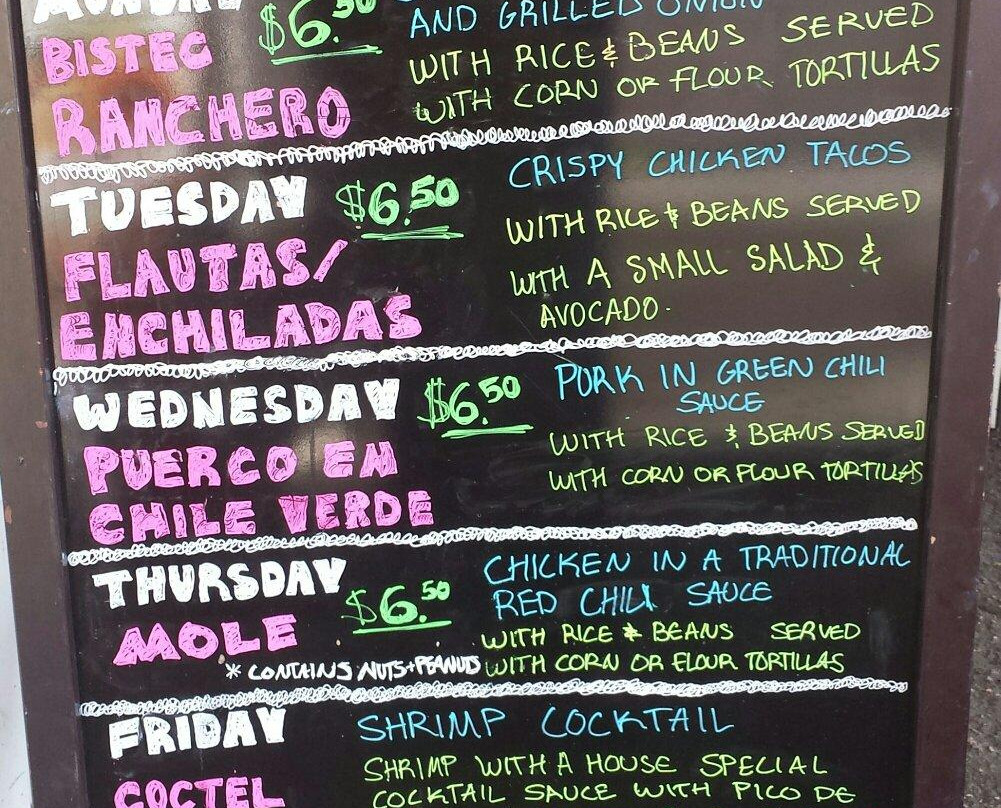 MONDAY $6.50
AND GRILLED ONION
BISTEC
RANCHERO
WITH RICE & BEANS SERVED
WITH CORN OR FLOUR TORTILLAS
TUESDAY $6.50
FLAUTAS/
ENCHILADAS
CRISPY CHICKEN TACOS
WITH RICE & BEANS SERVED
WITH A SMALL SALAD &
AVOCADO.
WEDNESDAY $6.50
PUERCO EN
CHILE VERDE
PORK IN GREEN CHILI
SAUCE
WITH RICE & BEANS SERVED
WITH CORN OR FLOUR TORTILLAS
THURSDAY $6.50
MOLE
* CONTAINS NUTS + PEANUTS
CHICKEN IN A TRADITIONAL
RED CHILI SAUCE
WITH RICE & BEANS SERVED
WITH CORN OR FLOUR TORTILLAS
FRIDAY
COCTEL
SHRIMP COCKTAIL
SHRIMP WITH A HOUSE SPECIAL
COCKTAIL SAUCE WITH PICO DE